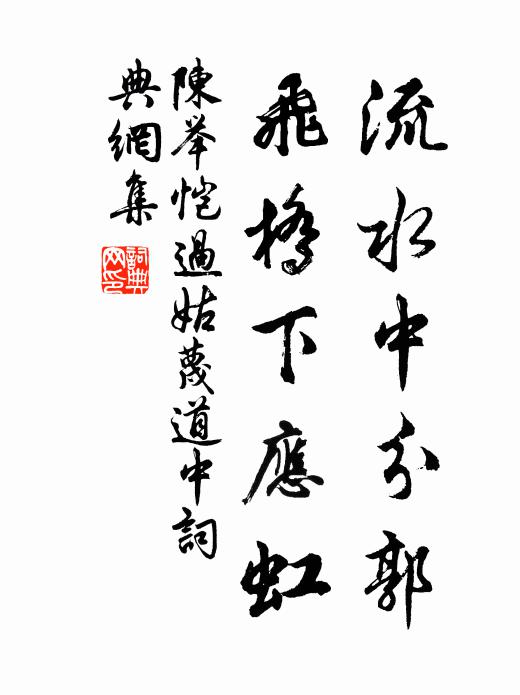 流水中分郭
飛橋下應虹
陳舉愷過姑蔑道中詞
典網集
詞典
网印